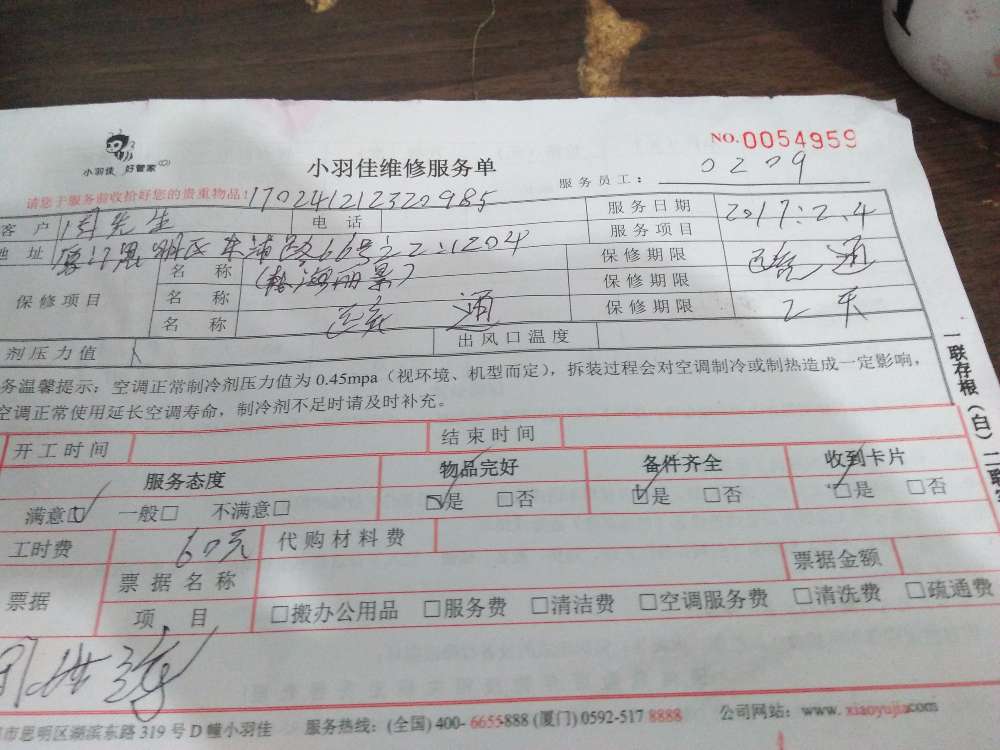 小羽佳 好管家
小羽佳维修服务单
NO.0054959
请您于服务前收拾好您的贵重物品!
170241212320985
服务员工: 0209
客 户 周先生 电 话 服务日期 2017.2.4
地 址 厦门思明区 66号 1204 服务项目
保修项目
名 称 保修期限 通
名 称 保修期限
名 称 通 保修期限 2天
剂压力值 出风口温度
务温馨提示: 空调正常制冷剂压力值为 0.45mpa (视环境、机型而定), 拆装过程会对空调制冷或制热造成一定影响,
空调正常使用延长空调寿命, 制冷剂不足时请及时补充。
一联存根(白) 二联
开工时间 结束时间
服务态度 物品完好 备件齐全 收到卡片
满意☑ 一般□ 不满意□ ☑是 □否 ☑是 □否 ☑是 □否
工时费 60元 代购材料费
票据 票据名称 票据金额
项 目 □搬办公用品 □服务费 □清洁费 □空调服务费 □清洗费 □疏通费
市思明区湖滨东路 319 号 D 幢小羽佳 服务热线: (全国) 400- 6655888 (厦门) 0592-517 8888 公司网站: www. xiaoyujia.com